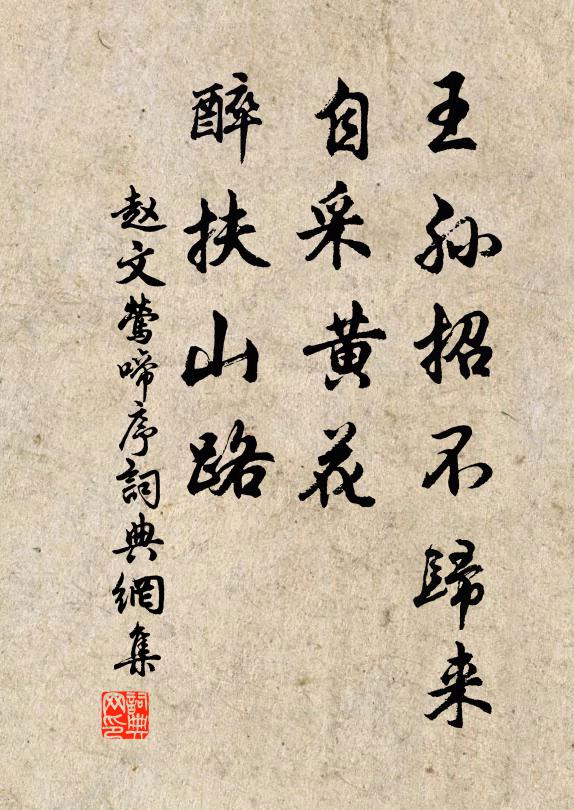 王孙招不歸来
自采黄花
醉扶山路
赵文鶯啼序詞典網集
詞典网印